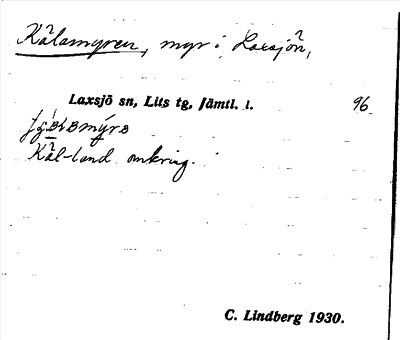 Kålamyren, myr i Laxsjön,
Laxsjö sn, Lits tg, Jämtl. l. 96
Kål-land omkring.
C. Lindberg 1930.